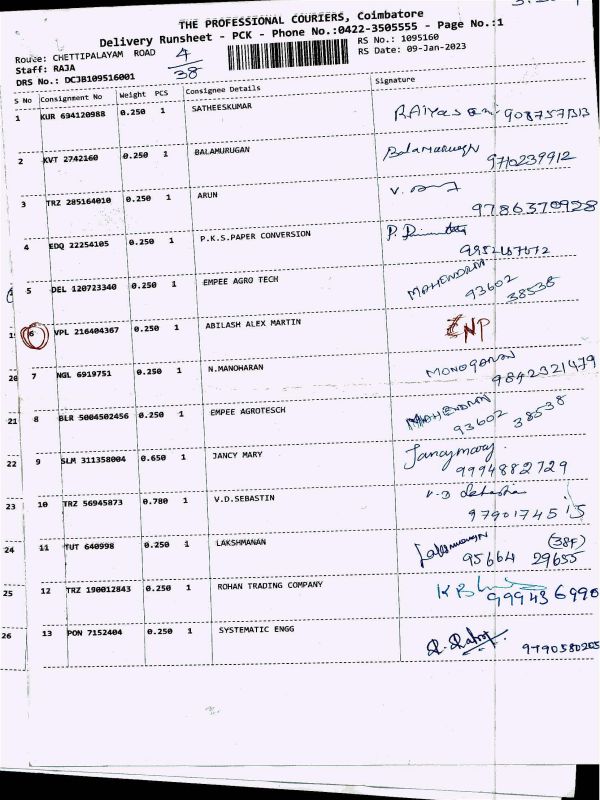 THE PROFESSIONAL COURIERS, Coimbatore
Delivery Runsheet - PCK - Phone No.:0422-3505555 - Page No.:1
Route: CHETTIPALAYAM ROAD 4/38 RS No.: 1095160
Staff: RAJA RS Date: 09-Jan-2023
DRS No.: DCJB109516001
S No Consignment No Weight PCS Consignee Details Signature
1 KUR 694120988 0.250 1 SATHEESKUMAR
2 KVT 2742160 0.250 1 BALAMURUGAN Balamurugn 9710239912
3 TRZ 285164010 0.250 1 ARUN 9786370928
4 EDQ 22254105 0.250 1 P.K.S.PAPER CONVERSION
5 DEL 120723340 0.250 1 EMPEE AGRO TECH MAHENDRAN 93602 38538
6 VPL 216404367 0.250 1 ABILASH ALEX MARTIN CNP
20 7 NGL 6919751 0.250 1 N.MANOHARAN MONOGARAN 9842321479
21 8 BLR 5004502456 0.250 1 EMPEE AGROTESCH MAHENDRAN 93602 38538
22 9 SLM 311358004 0.650 1 JANCY MARY Jancymary. 9994882729
23 10 TRZ 56945873 0.780 1 V.D.SEBASTIN
24 11 TUT 640998 0.250 1 LAKSHMANAN (38F) 95664 29655
25 12 TRZ 190012843 0.250 1 ROHAN TRADING COMPANY 999436990
26 13 PON 7152404 0.250 1 SYSTEMATIC ENGG 9790580205